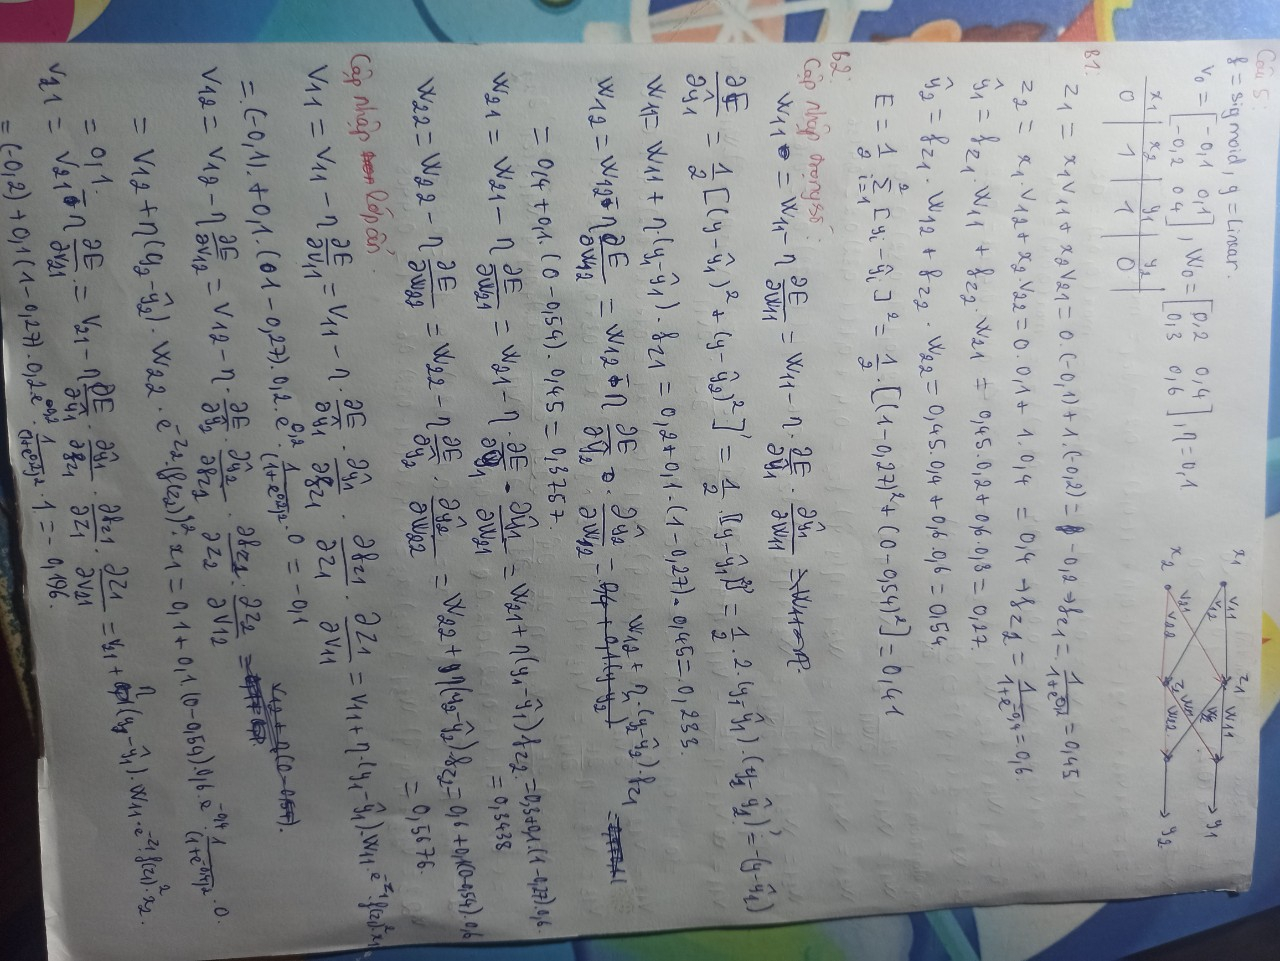 Câu 5:
f = sigmoid, g = linear.
V0 = [-0,1 0,1; -0,2 0,4], W0 = [0,2 0,4; 0,3 0,6], η = 0,1
x1 | x2 | y1 | y2
0 | 1 | 1 | 0
x1 v11 z1 w11 y1
x2 v21 v22 z2 w22 y2
B1:
z1 = x1v11 + x2v21 = 0.(-0,1) + 1.(-0,2) = -0,2 → fz1 = 1/(1+e^0,2) = 0,45
z2 = x1.v12 + x2v22 = 0.0,1 + 1.0,4 = 0,4 → fz2 = 1/(1+e^-0,4) = 0,6.
ŷ1 = fz1.w11 + fz2.w21 = 0,45.0,2 + 0,6.0,3 = 0,27.
ŷ2 = fz1.w12 + fz2.w22 = 0,45.0,4 + 0,6.0,6 = 0,54
E = 1/2 Σ_{i=1}^{2} [yi - ŷi]² = 1/2.[(1-0,27)² + (0-0,54)²] = 0,41
B2:
Cập nhập trọng số:
w11 = w11 - η ∂E/∂w11 = w11 - η.∂E/∂ŷ1.∂ŷ1/∂w11
∂E/∂ŷ1 = 1/2[(y-ŷ1)² + (y-ŷ2)²]' = 1/2.[(y-ŷ1)²]' = 1/2.2.(y1-ŷ1).(y1-ŷ1)' = -(y-ŷ1)
w11 = w11 + η(y1-ŷ1).fz1 = 0,2 + 0,1.(1-0,27).0,45 = 0,233.
w12 = w12 - η ∂E/∂w12 = w12 - η ∂E/∂ŷ2.∂ŷ2/∂w12 = w12 + η.(y2-ŷ2).fz1
= 0,4 + 0,1.(0-0,54).0,45 = 0,3757
w21 = w21 - η ∂E/∂w21 = w21 - η.∂E/∂ŷ1.∂ŷ1/∂w21 = w21 + η(y1-ŷ1)fz2 = 0,3+0,1(1-0,27).0,6 = 0,3438
w22 = w22 - η ∂E/∂w22 = w22 - η ∂E/∂ŷ2.∂ŷ2/∂w22 = w22 + η(y2-ŷ2).fz2 = 0,6 + 0,1(0-0,54).0,6 = 0,5676.
Cập nhập lớp ẩn.
v11 = v11 - η ∂E/∂v11 = v11 - η.∂E/∂ŷ1.∂ŷ1/∂fz1.∂fz1/∂z1.∂z1/∂v11 = v11 + η.(y1-ŷ1).w11.e^-z1.f(z1)².x1
= (-0,1) + 0,1.(01-0,27).0,2.e^0,2.1/(1+e^0,2)².0 = -0,1
v12 = v12 - η ∂E/∂v12 = v12 - η.∂E/∂ŷ2.∂ŷ2/∂fz2.∂fz2/∂z2.∂z2/∂v12
= v12 + η(y2-ŷ2).w22.e^-z2.(f(z2))².x1 = 0,1 + 0,1(0-0,54).0,6.e^-0,4.1/(1+e^-0,4)².0.
= 0,1.
v21 = v21 - η ∂E/∂v21 = v21 - η ∂E/∂ŷ1.∂ŷ1/∂fz1.∂fz1/∂z1.∂z1/∂v21 = v21 + η(y1-ŷ1).w11.e^-z1.f(z1)².x2.
= (-0,2) + 0,1(1-0,27).0,2.e^0,2.1/(1+e^0,2)².1 = -0,196.